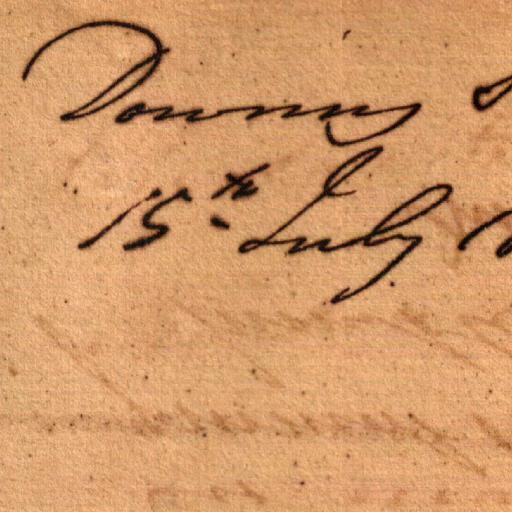 Downing S
15th July 1